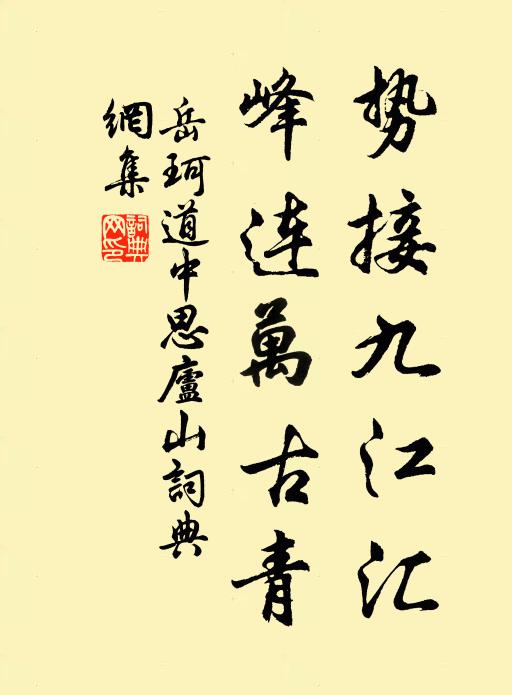 势接九江汇
峰连萬古青
岳珂道中思廬山詞典
網集
詞典
网印